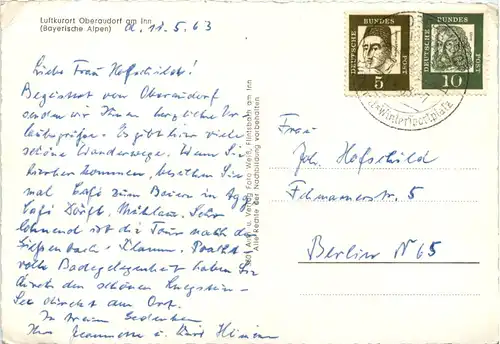 Luftkurort Oberaudorf am Inn
(Bayerische Alpen)
d. 11.5.63
Liebe Frau Hofschild!
Begeistert von Oberaudorf
senden wir Ihnen herzliche Ur-
laubsgrüße. Es gibt hier viele
schöne Wanderwege. Wenn Sie
hierher kommen, besuchen Sie
mal Café zum Beier in Agg,
Café Dörfl, Mühlau. Sehr
lohnend ist die Tour nach der
Klamm. Pracht-
volle Badegelegenheit haben Sie
durch den schönen
See direkt am Ort.
In treuem Gedenken
Ihre u. Kurt
Aufn. u. Verlag Foto Weiß, Flintsbach am Inn
Alle Rechte der Nachbildung vorbehalten
DEUTSCHE BUNDES POST
5
DEUTSCHE BUNDES POST
10
Wintersportplatz
Frau
Joh. Hofschild
Fehmarnerstr. 5
Berlin N 65